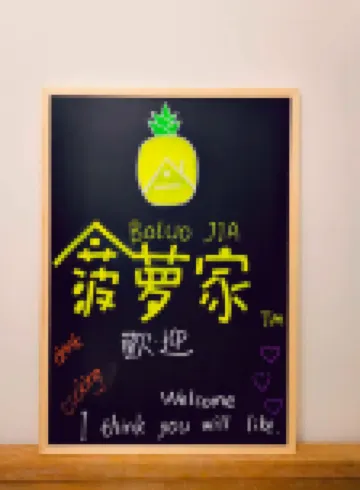 Boluo JIA
菠萝家
TM
歡迎
Welcome
I think you will like.